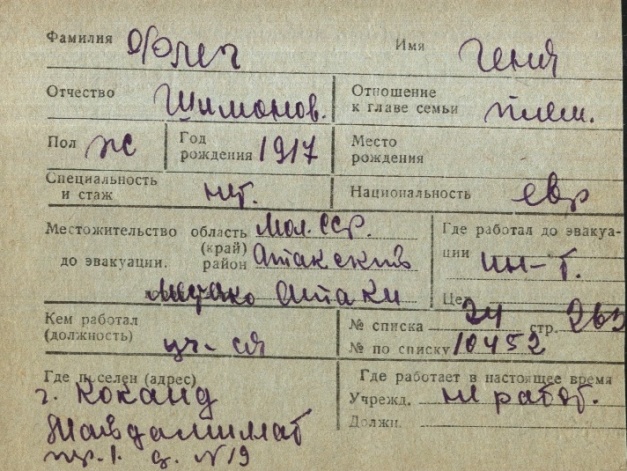 Фамилия Флег Имя Геня
Отчество Шимонов. Отношение к главе семьи плем.
Пол ж Год рождения 1917 Место рождения
Специальность и стаж нет. Национальность евр
Местожительство область Мол. ССР. Где работал до эвакуа-
(край)
до эвакуации. район Атакский ции ин-т.
Атаки Це
Кем работал № списка 24 стр. 263
(должность) уч-ся № по списку 10452
Где поселен (адрес) Где работает в настоящее время
г. Коканд Учрежд. не работ.
Должн.
пр. 1. д. №19